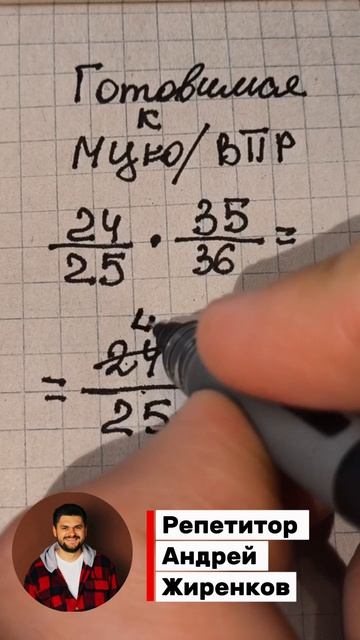 Готовимся
к
МЦКО/ВПР
24/25 · 35/36 =
4
= 24/25
Репетитор
Андрей
Жиренков